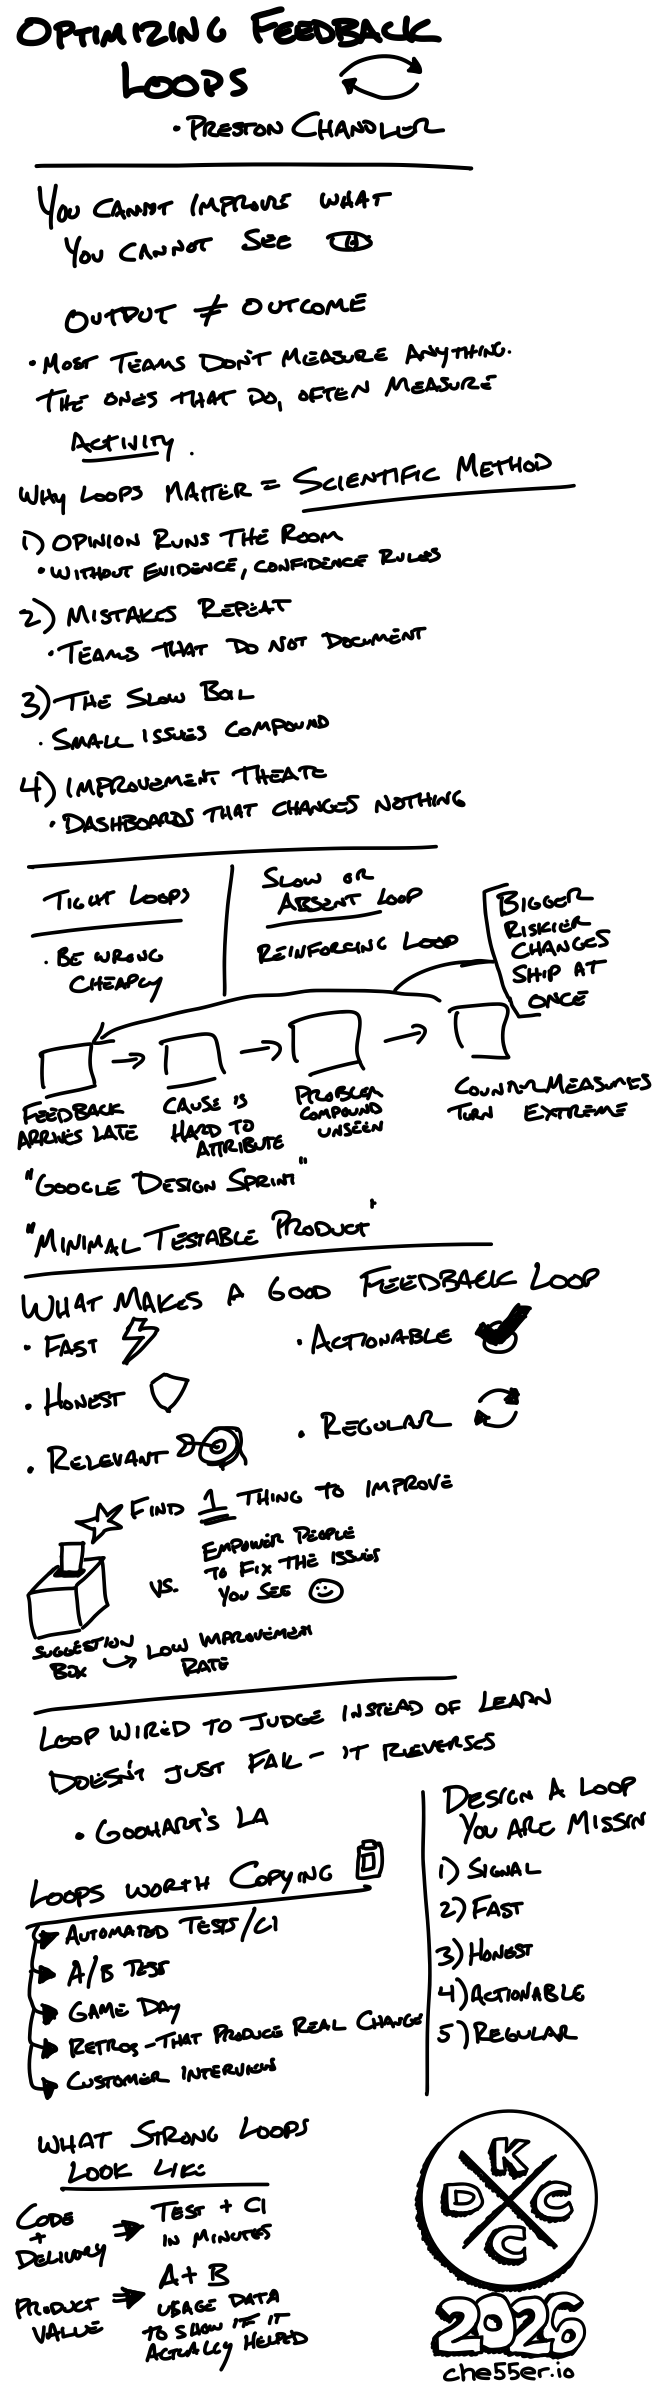 OPTIMIZING FEEDBACK
LOOPS
• PRESTON CHANDLER
YOU CANNOT IMPROVE WHAT
YOU CANNOT SEE
OUTPUT ≠ OUTCOME
• MOST TEAMS DON'T MEASURE ANYTHING.
THE ONES THAT DO, OFTEN MEASURE
ACTIVITY.
WHY LOOPS MATTER = SCIENTIFIC METHOD
1) OPINION RUNS THE ROOM
• WITHOUT EVIDENCE, CONFIDENCE RULES
2) MISTAKES REPEAT
• TEAMS THAT DO NOT DOCUMENT
3) THE SLOW BOIL
• SMALL ISSUES COMPOUND
4) IMPROVEMENT THEATE
• DASHBOARDS THAT CHANGES NOTHING
TIGHT LOOPS
• BE WRONG
CHEAPLY
SLOW OR
ABSENT LOOP
REINFORCING LOOP
BIGGER
RISKIER
CHANGES
SHIP AT
ONCE
FEEDBACK
ARRIVES LATE
CAUSE IS
HARD TO
ATTRIBUTE
PROBLEM
COMPOUND
UNSEEN
COUNTERMEASURES
TURN EXTREME
"GOOGLE DESIGN SPRINT"
"MINIMAL TESTABLE PRODUCT"
WHAT MAKES A GOOD FEEDBACK LOOP
• FAST
• ACTIONABLE
• HONEST
• REGULAR
• RELEVANT
FIND 1 THING TO IMPROVE
VS.
EMPOWER PEOPLE
TO FIX THE ISSUES
YOU SEE
SUGGESTION
BOX → LOW IMPROVEMENT
RATE
LOOP WIRED TO JUDGE INSTEAD OF LEARN
DOESN'T JUST FAIL - IT REVERSES
• GOOHART'S LA
LOOPS WORTH COPYING
AUTOMATED TESTS/CI
A/B TEST
GAME DAY
RETROS - THAT PRODUCE REAL CHANGE
CUSTOMER INTERVIEWS
DESIGN A LOOP
YOU ARE MISSIN
1) SIGNAL
2) FAST
3) HONEST
4) ACTIONABLE
5) REGULAR
WHAT STRONG LOOPS
LOOK LIKE
CODE
+
DELIVERY
⇒ TEST + CI
IN MINUTES
PRODUCT
VALUE
⇒ A+B
USAGE DATA
TO SHOW IF IT
ACTUALLY HELPED
K
D C
C
2026
che55er.io